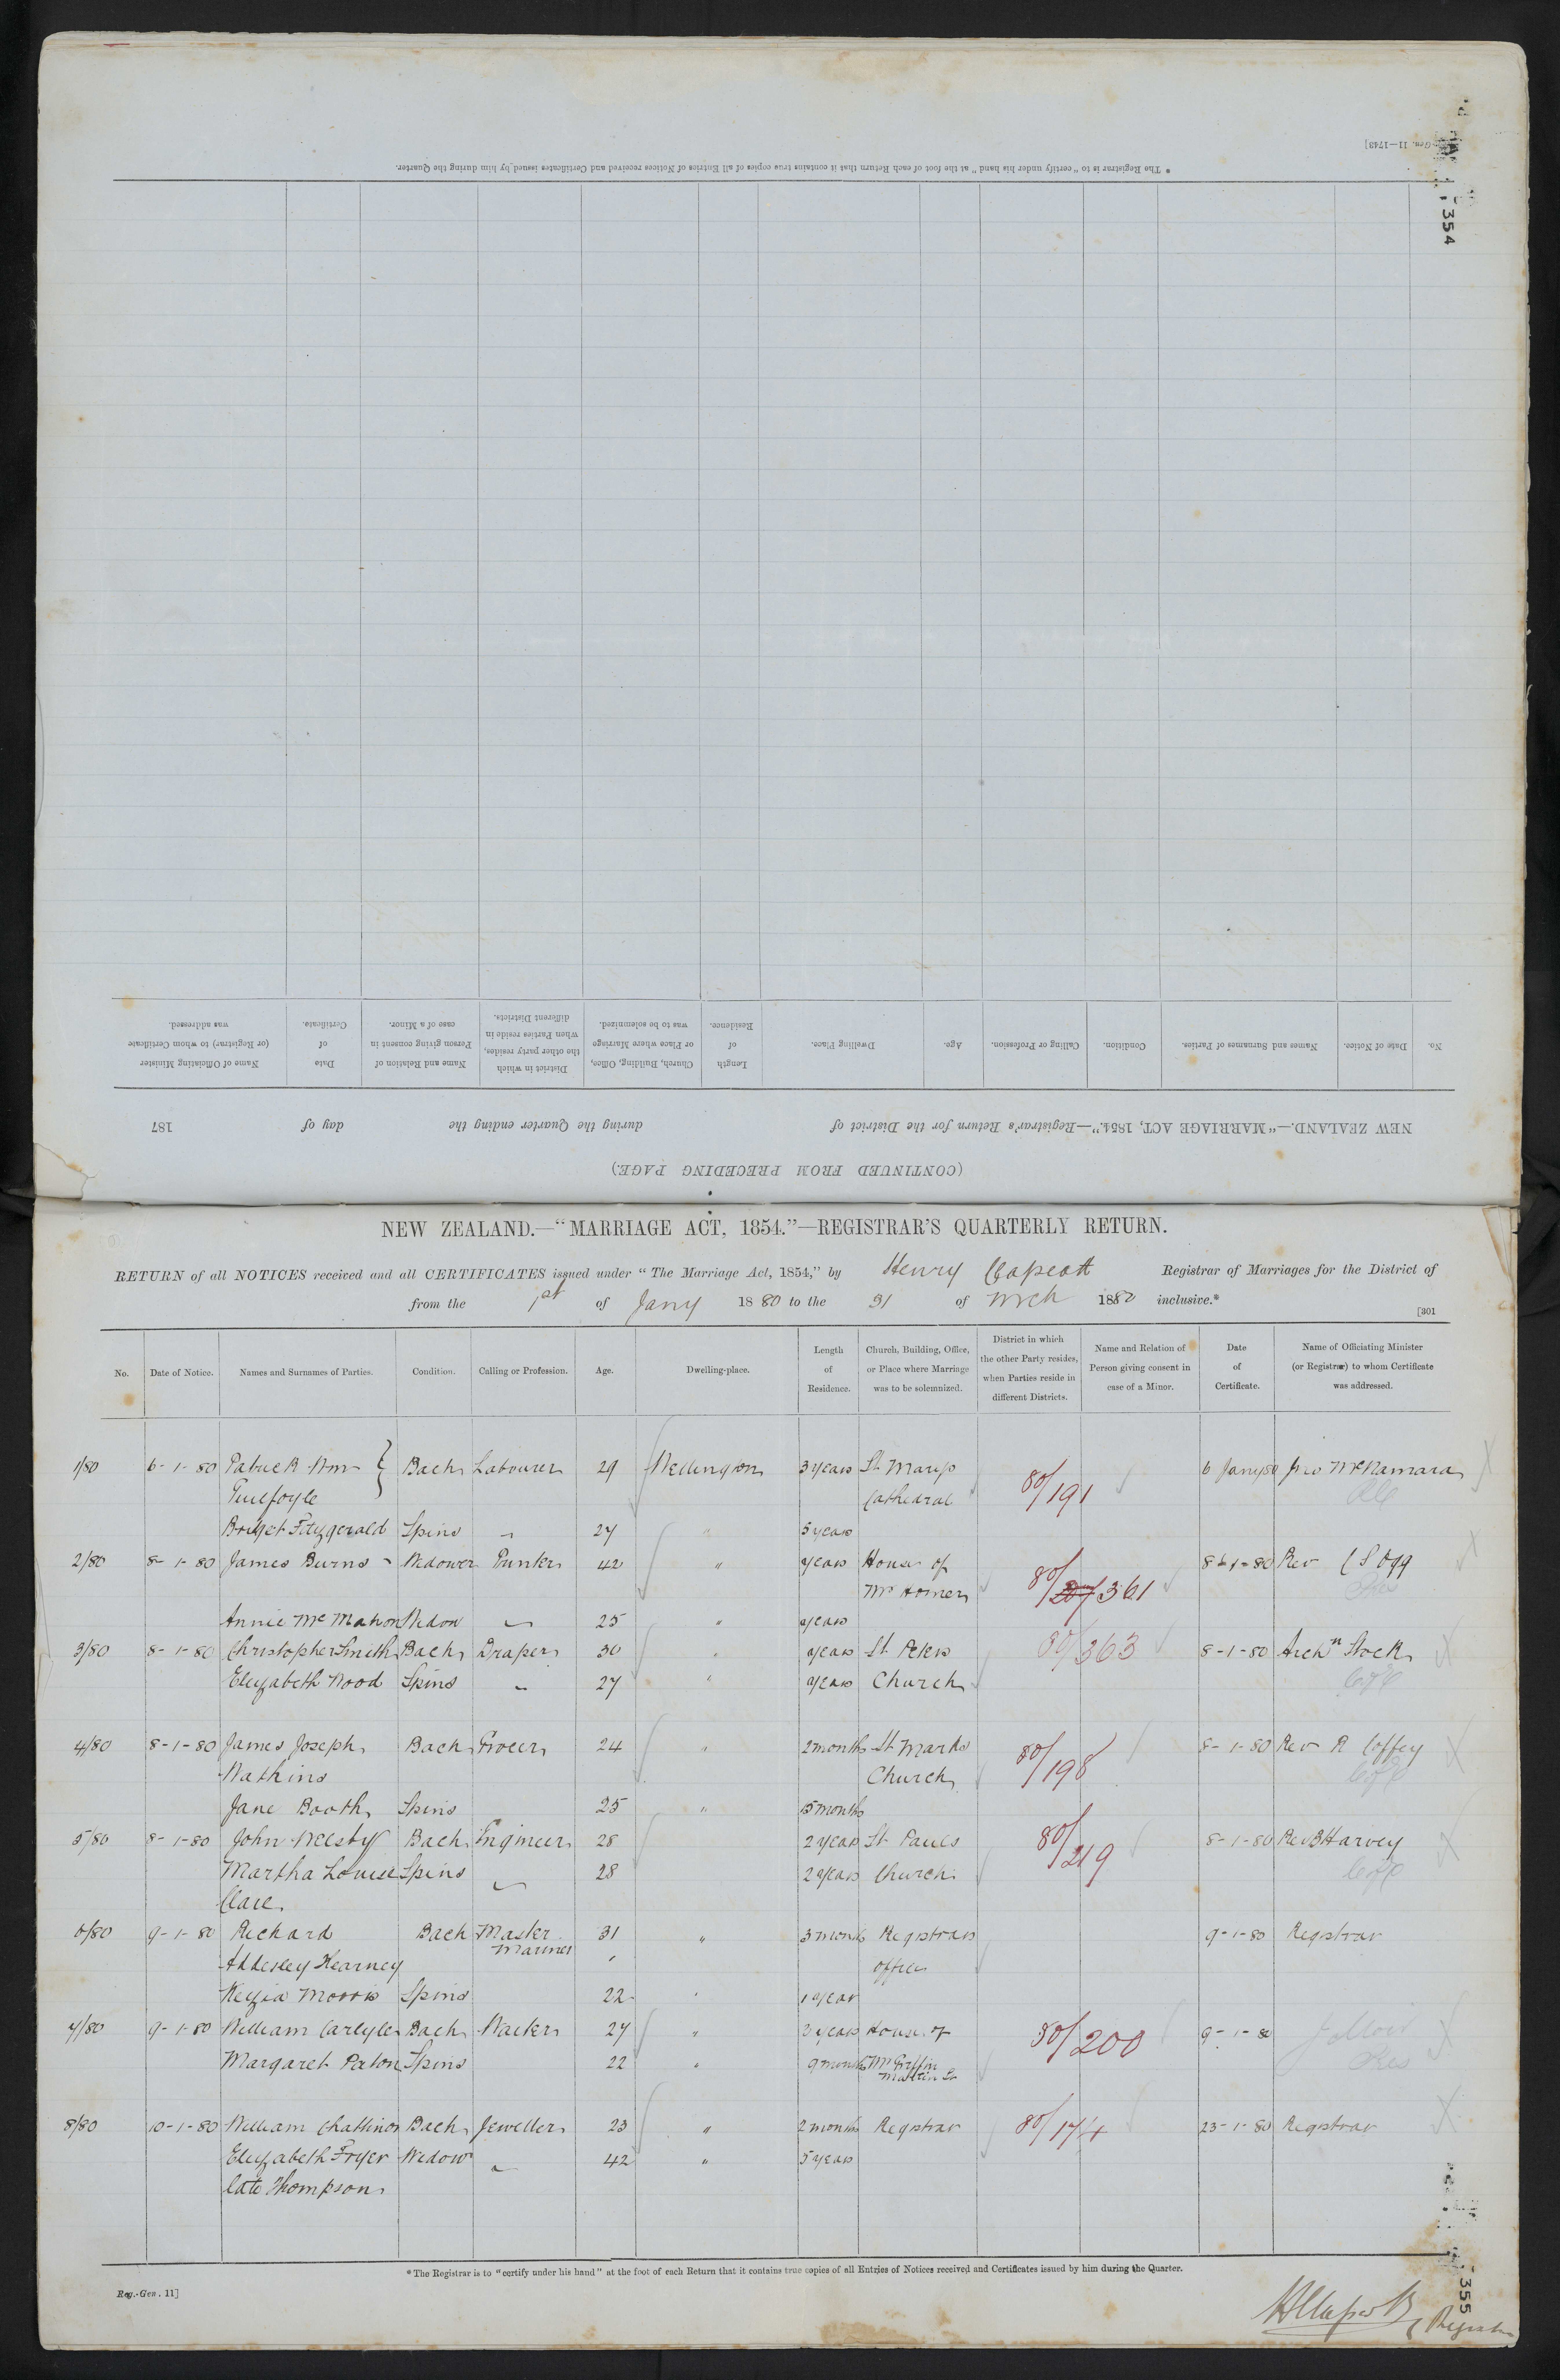 Reg.-Gen. 11—1743]
354
* The Registrar is to "certify under his hand" at the foot of each Return that it contains true copies of all Entries of Notices received and Certificates issued by him during the Quarter.
(CONTINUED FROM PRECEDING PAGE.)
NEW ZEALAND.—"MARRIAGE ACT, 1854."—Registrar's Return for the District of during the Quarter ending the day of 187
No. Date of Notice. Names and Surnames of Parties. Condition. Calling or Profession. Age. Dwelling Place. Length of Residence. Church, Building, Office, or Place where Marriage was to be solemnized. District in which the other party resides, when Parties reside in different Districts. Name and Relation of Person giving consent in case of a Minor. Date of Certificate. Name of Officiating Minister (or Registrar) to whom Certificate was addressed.
NEW ZEALAND.—"MARRIAGE ACT, 1854."—REGISTRAR'S QUARTERLY RETURN.
RETURN of all NOTICES received and all CERTIFICATES issued under "The Marriage Act, 1854," by Henry Capeott Registrar of Marriages for the District of
from the 1st of Jany 1880 to the 31 of Mch 1880 inclusive.*
[301
No. Date of Notice. Names and Surnames of Parties. Condition. Calling or Profession. Age. Dwelling-place. Length of Residence. Church, Building, Office, or Place where Marriage was to be solemnized. District in which the other Party resides, when Parties reside in different Districts. Name and Relation of Person giving consent in case of a Minor. Date of Certificate. Name of Officiating Minister (or Registrar) to whom Certificate was addressed.
1/80 6-1-80 Patrick Wm } Bach Labourer 29 Wellington 3 years St Marys 80/191 6 Jany 80 Jno McNamara
Guilfoyle Cathedral
Bridget Fitzgerald Spins " 27 " 5 years
2/80 8-1-80 James Burns Widower Printer 42 " years House of 80/361 8-1-80 Rev C S Ogg
Mr Homer
Annie McMahon Widow " 25 " years
3/80 8-1-80 Christopher Smith Bach Draper 30 " years St Peters 80/363 8-1-80 Archn Stock
Elizabeth Wood Spins " 27 " years Church C of E
4/80 8-1-80 James Joseph Bach Grocer 24 " 2 months St Marks 80/198 8-1-80 Rev R Coffey
Watkins Church C of E
Jane Booth Spins 25 " 15 months
5/80 8-1-80 John Welsby Bach Engineer 28 2 years St Pauls 80/219 8-1-80 Rev B Harvey
Martha Louise Spins " 28 2 years Church C of E
Clare
6/80 9-1-80 Richard Bach Master 31 " 3 months Registrars 9-1-80 Registrar
Mariner
Adderley Kearney office
Kezia Morris Spins 22 " 1 year
7/80 9-1-80 William Carlyle Bach Waiter 27 " 3 years House of 80/200 9-1-80
Margaret Paton Spins 22 " 9 months Mr Griffin
Martin St
8/80 10-1-80 William Chattinor Bach Jeweller 23 " 2 months Registrar 80/174 23-1-80 Registrar
Elizabeth Fryer Widow " 42 " 5 years
late Thompson
* The Registrar is to "certify under his hand" at the foot of each Return that it contains true copies of all Entries of Notices received and Certificates issued by him during the Quarter.
Reg.-Gen. 11]
355
Registrar